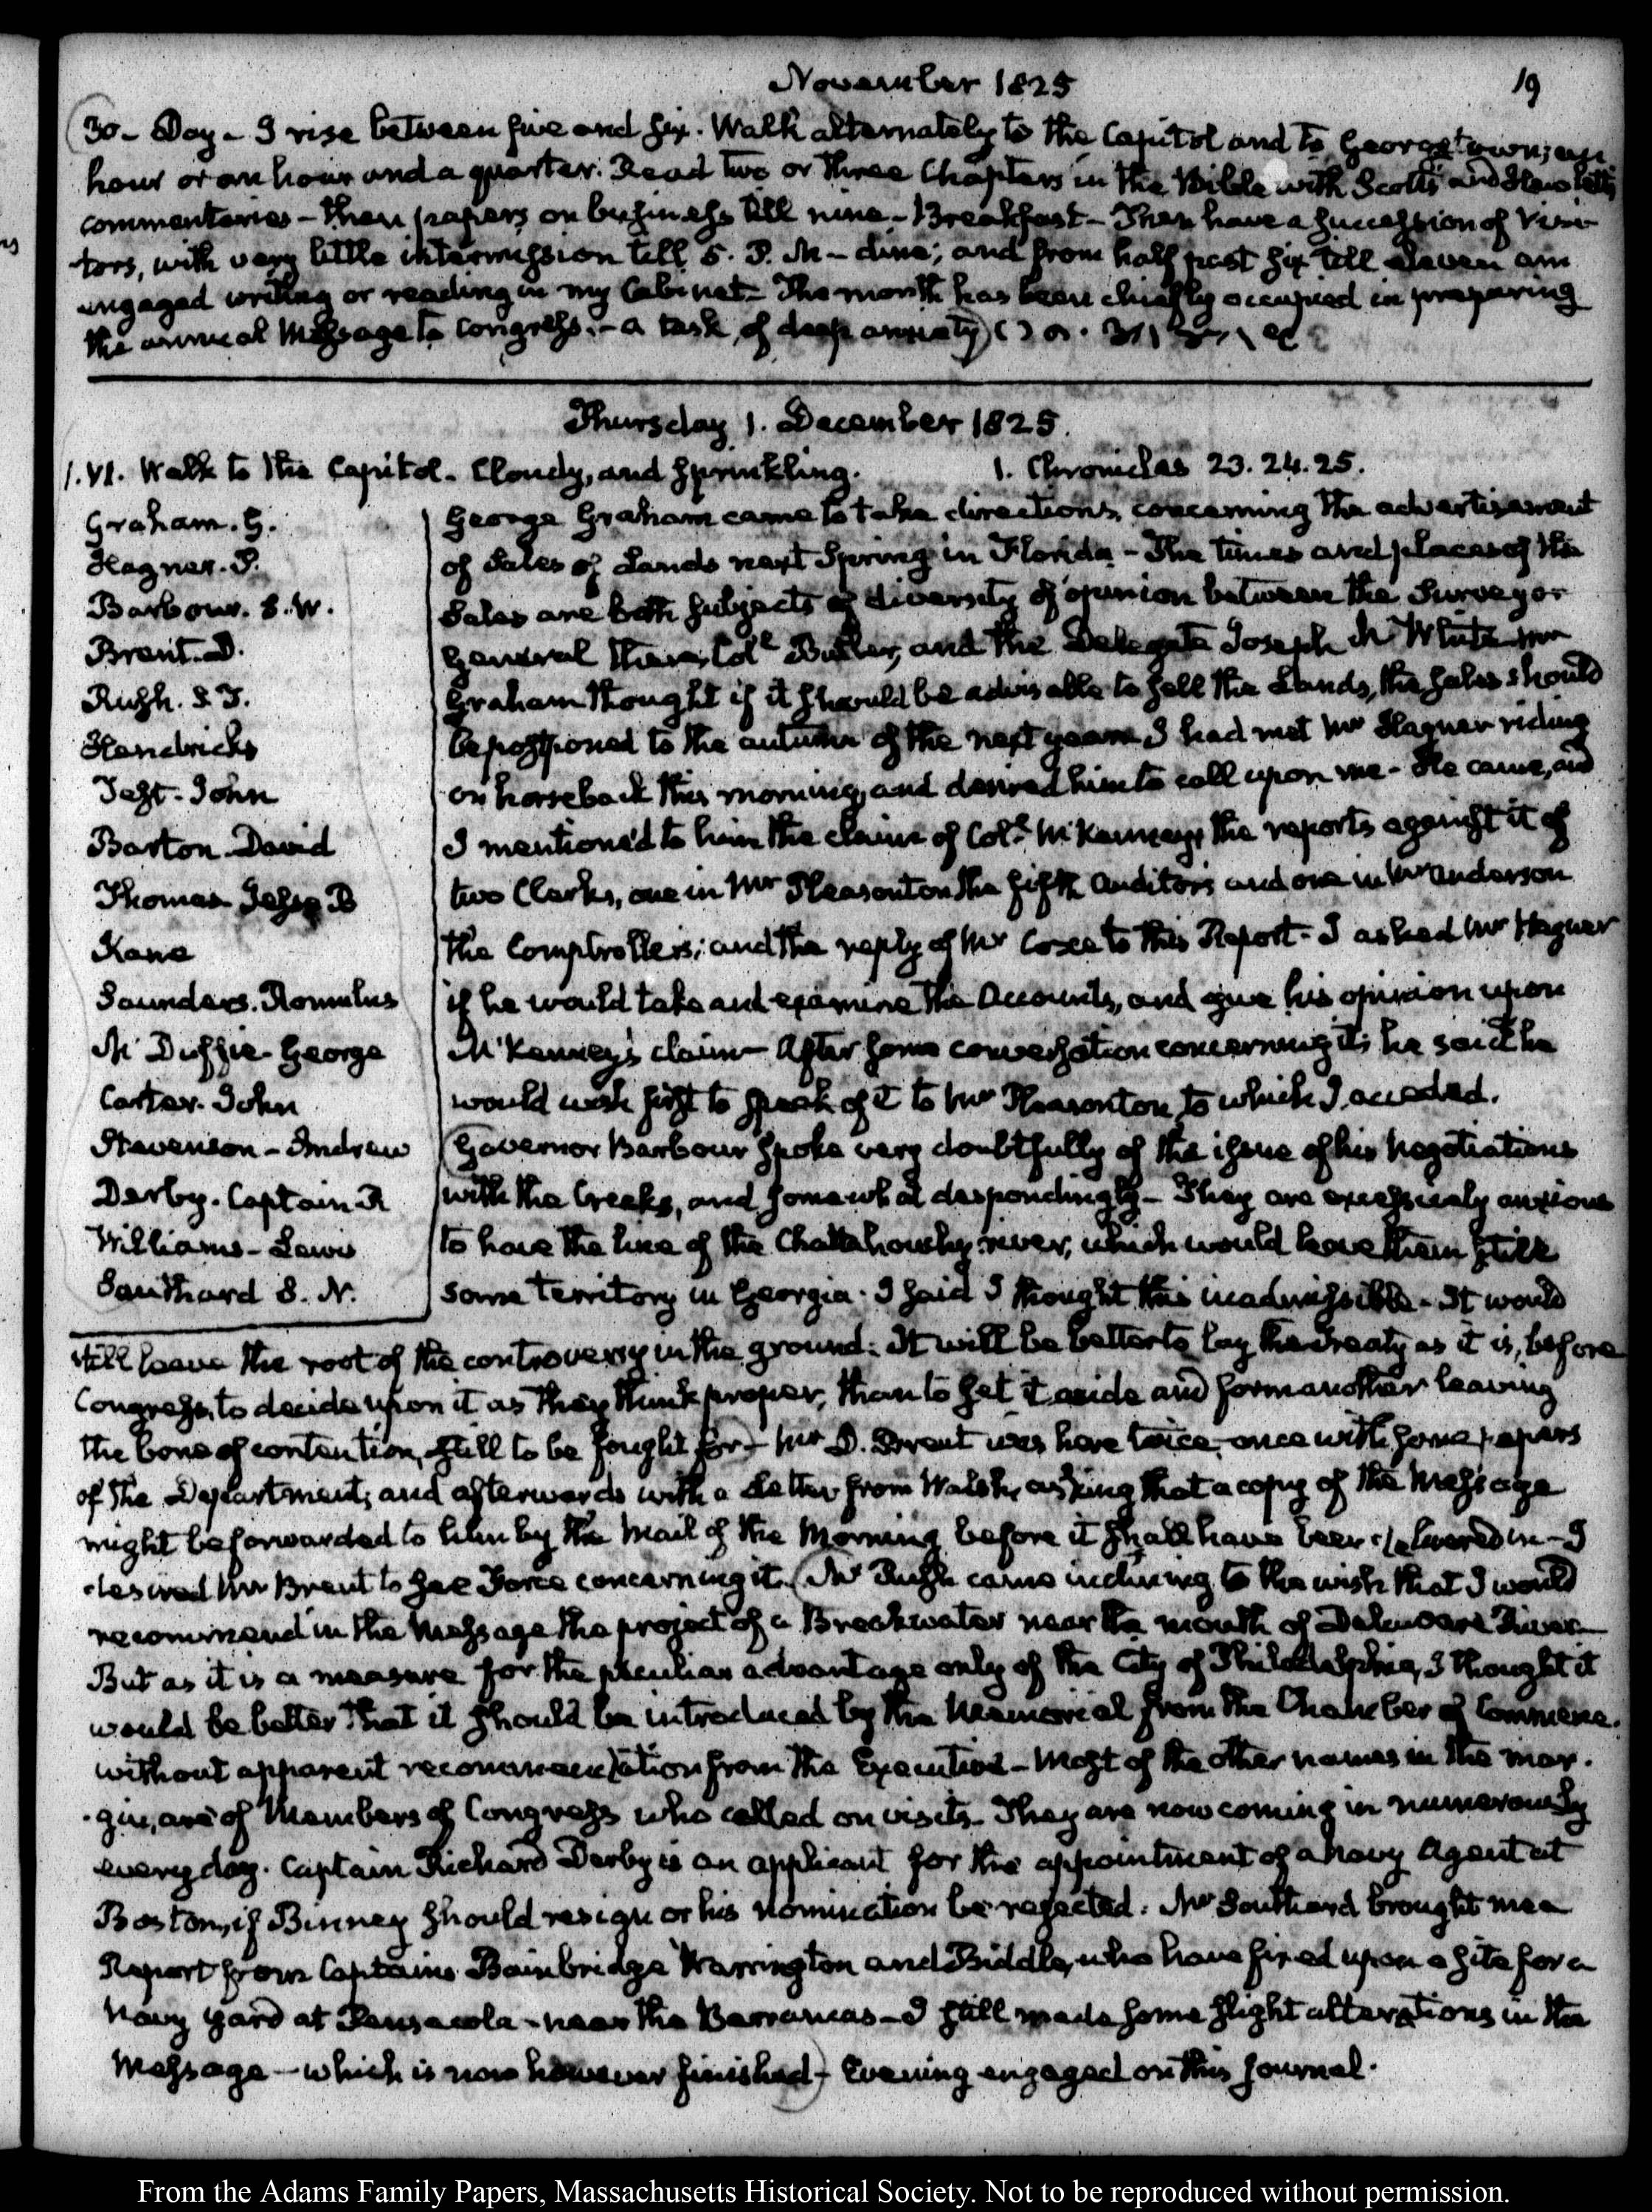 November 1825
19
30- Day - I rise between five and six. Walk alternately to the Capitol and to Georgetown; an
hour or an hour and a quarter. Read two or three Chapters in the Bible with Scott's and Hewlett's
commentaries - then papers on business till nine - Breakfast - Then have a succession of Visi-
tors, with very little intermission till 5. P. M - dine; and from half past six till eleven am
engaged writing or reading in my Cabinet - The month has been chiefly occupied in preparing
the annual Message to Congress. - a task of deep anxiety
Thursday 1. December 1825.
1. VI. Walk to the Capitol. Cloudy, and sprinkling.
1. Chronicles 23. 24. 25.
Graham. G.
Hagner. P.
Barbour. S. W.
Brent. D.
Rush. S. T.
Hendricks
Test. John
Barton David
Thomas Jesse B
Kane
Saunders. Romulus
McDuffie George
Carter. John
Stevenson - Andrew
Derby. Captain R
Williams - Lewis
Southard S. N.
George Graham came to take directions, concerning the advertisement
of Sales of Lands next Spring in Florida - The times and places of the
Sales are both subjects of diversity of opinion between the Surveyor
General there, Coll. Butler, and the Delegate Joseph M White - Mr
Graham thought if it should be advisable to sell the Lands, the sales should
be postponed to the autumn of the next year. I had met Mr Hagner riding
on horseback this morning, and desired him to call upon me - He came, and
I mentioned to him the claim of Coll. McKenney, the reports against it of
two Clerks, one in Mr Pleasonton the fifth Auditor's and one in Mr Anderson
the Comptroller's; and the reply of Mr Coxe to this Report - I asked Mr Hagner
if he would take and examine the Accounts, and give his opinion upon
McKenney's claim - After some conversation concerning it, he said he
would wish first to speak of it to Mr Pleasonton, to which I acceded.
Governor Barbour spoke very doubtfully of the issue of his Negotiations
with the Creeks, and somewhat despondingly - They are excessively anxious
to have the line of the Chattahouchy river, which would leave them still
some territory in Georgia. I said I thought this inadmissible - It would
still leave the root of the controversy in the ground. It will be better to lay the Treaty as it is, before
Congress, to decide upon it as they think proper, than to set it aside and form another leaving
the bone of contention, still to be fought for - Mr D. Brent was here twice, once with some papers
of the Department, and afterwards with a Letter from Walsh, asking that a copy of the Message
might be forwarded to him by the Mail of the Morning before it shall have been delivered in - I
desired Mr Brent to see Force concerning it. Mr Rush came inclining to the wish that I would
recommend in the Message the project of a Breakwater near the mouth of Delaware River -
But as it is a measure for the peculiar advantage only of the City of Philadelphia, I thought it
would be better that it should be introduced by the Memorial from the Chamber of Commerce.
without apparent recommendation from the Executive - Most of the other names in the mar-
gin, are of Members of Congress who called on visits - They are now coming in numerously
every day. Captain Richard Derby is an applicant for the appointment of a Navy Agent at
Boston, if Binney should resign or his nomination be rejected. Mr Southard brought me a
Report from Captains Bainbridge Warrington and Biddle, who have fixed upon a site for a
Navy Yard at Pensacola - near the Barrancas - I still made some slight alterations in the
Message - which is now however finished - Evening engaged on this Journal.
From the Adams Family Papers, Massachusetts Historical Society. Not to be reproduced without permission.